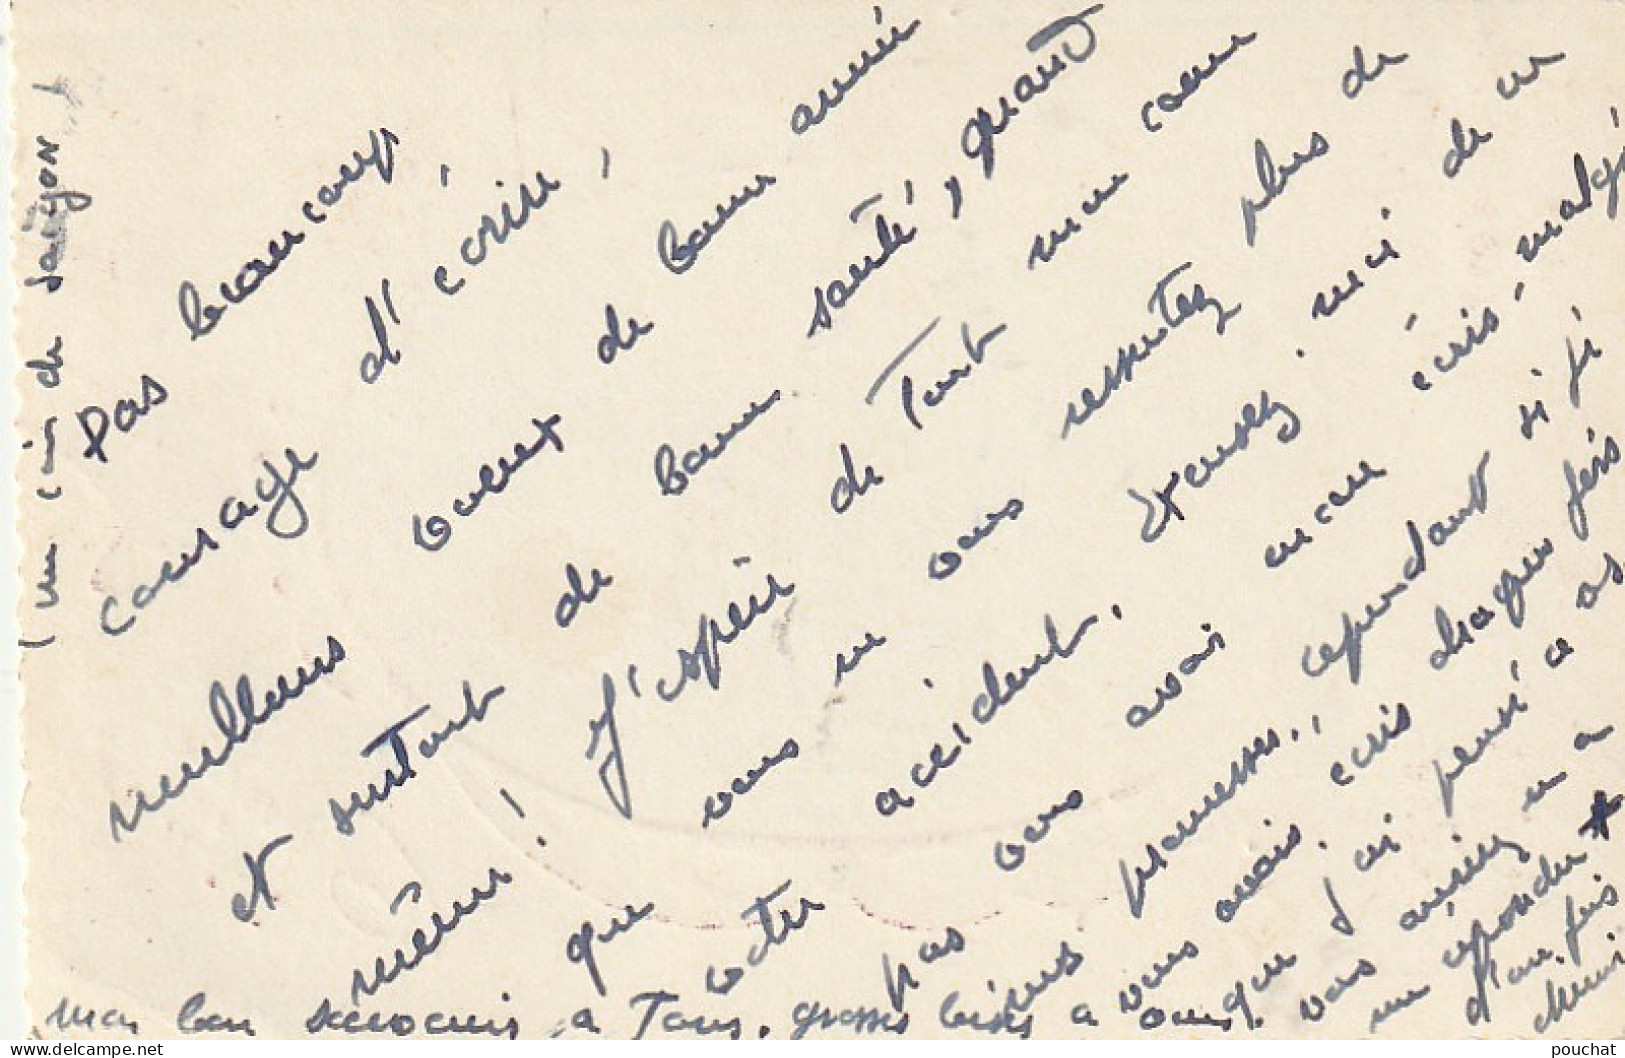 (un coin de Saïgon)
pas beaucoup,
courage d'écrire,
meilleurs voeux de bonne année
et surtout de bonne santé, quand
même! J'espère de tout mon coeur
que vous ne vous ressentez plus de
votre accident. Excusez. moi de ne
pas vous avoir encore écris, malgré
mes promesses., cependant si je
vous avais écris chaques fois
que j'ai pensé a
vous, vous auriez
d'une fois
mon bon souvenir a Tous. grosses bises a
pouchat